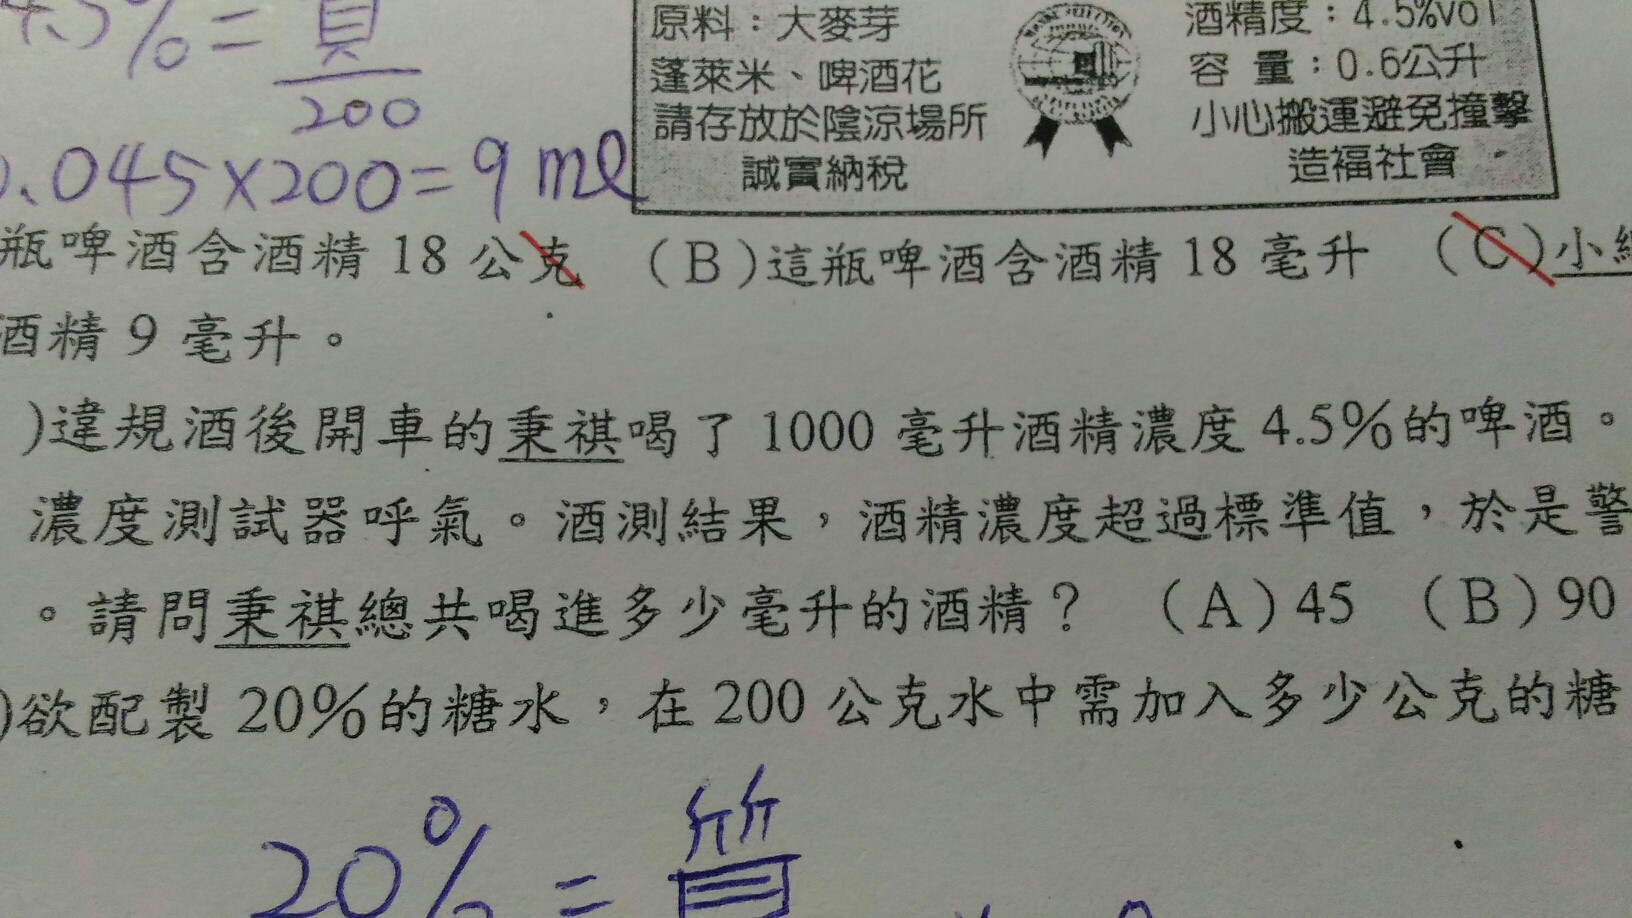 4.5%=質
200
0.045×200=9 ml
原料：大麥芽
蓬萊米、啤酒花
請存放於陰涼場所
誠實納稅
酒精度：4.5%vol
容 量：0.6公升
小心搬運避免撞擊
造福社會
瓶啤酒含酒精 18 公克 （B）這瓶啤酒含酒精 18 毫升 （C）小
酒精 9 毫升。
)違規酒後開車的秉祺喝了 1000 毫升酒精濃度 4.5%的啤酒。
濃度測試器呼氣。酒測結果，酒精濃度超過標準值，於是警
。請問秉祺總共喝進多少毫升的酒精？ （A）45 （B）90
)欲配製 20%的糖水，在 200 公克水中需加入多少公克的糖
20% = 質